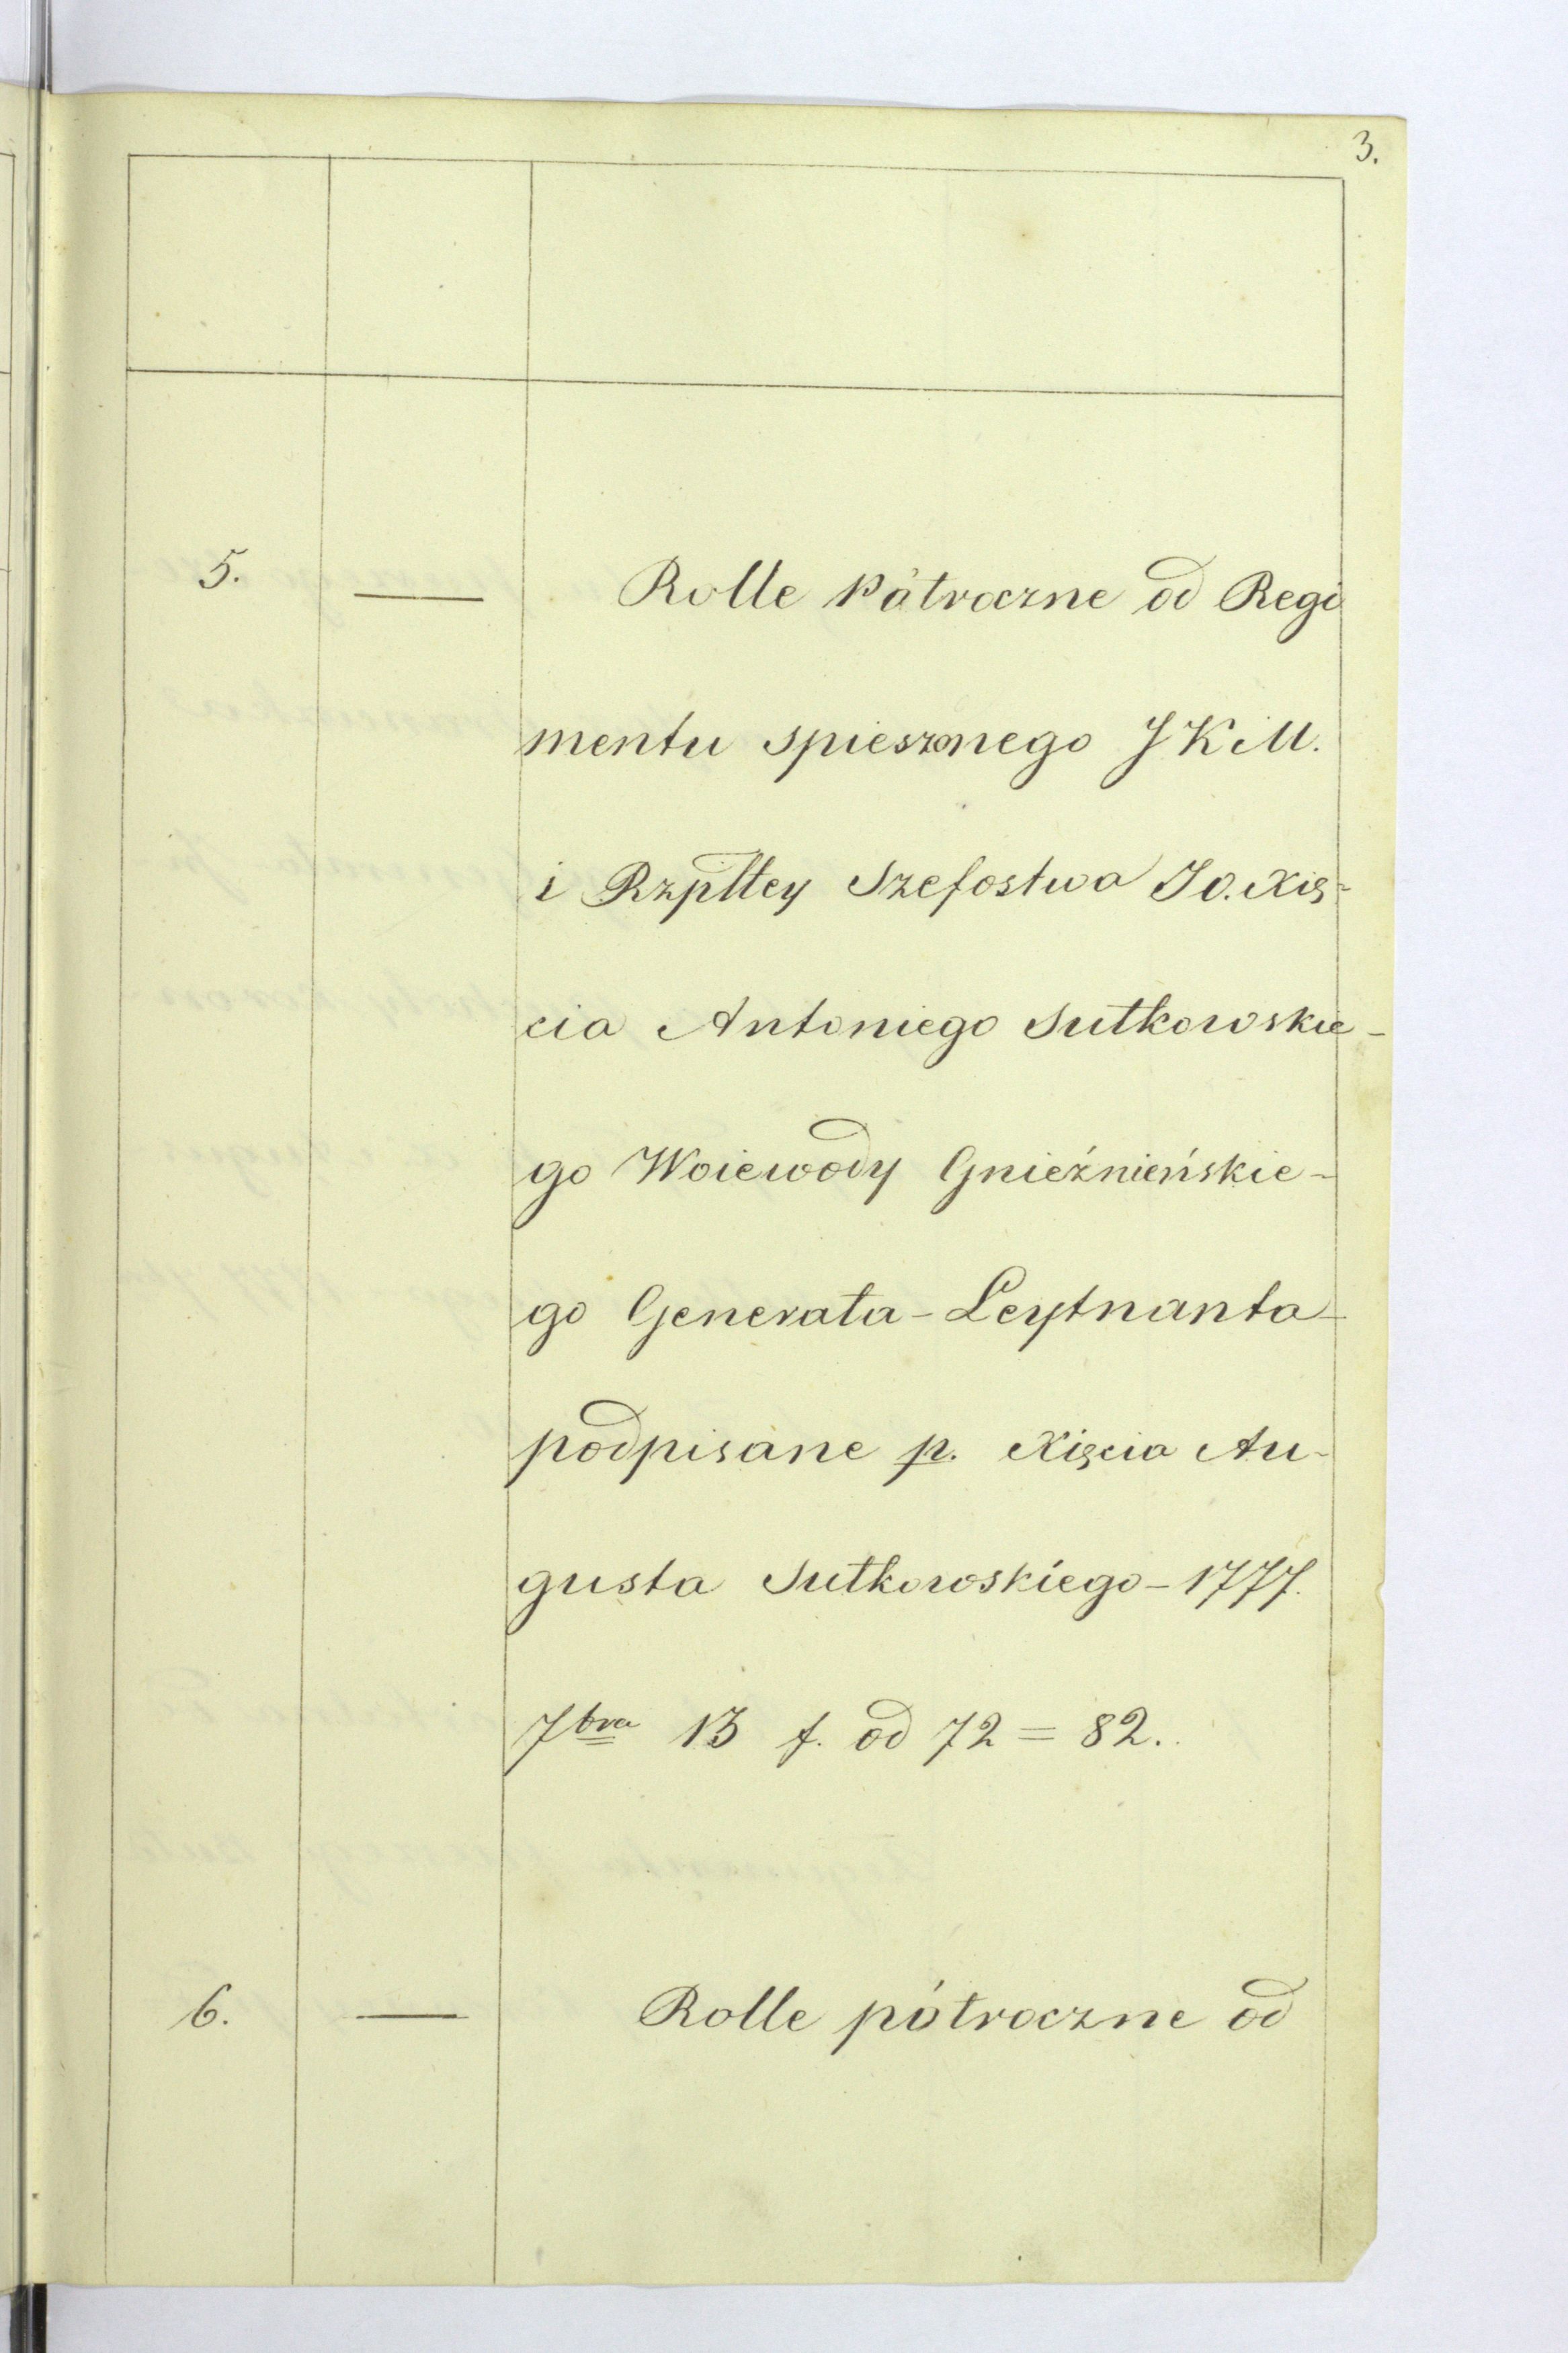 3.
5. — Rolle Półroczne od Regi
mentu spiesznego JKM.
i Rzpltey Szefostwa JO. Xię-
cia Antoniego Sułkowskie-
go Woiewody Gnieźnieńskie-
go Generała-Leytnanta-
podpisane p. Xięcia Au-
gusta Sułkowskiego - 1777.
7bra 13 f. od 72 = 82.
6. — Rolle półroczne od